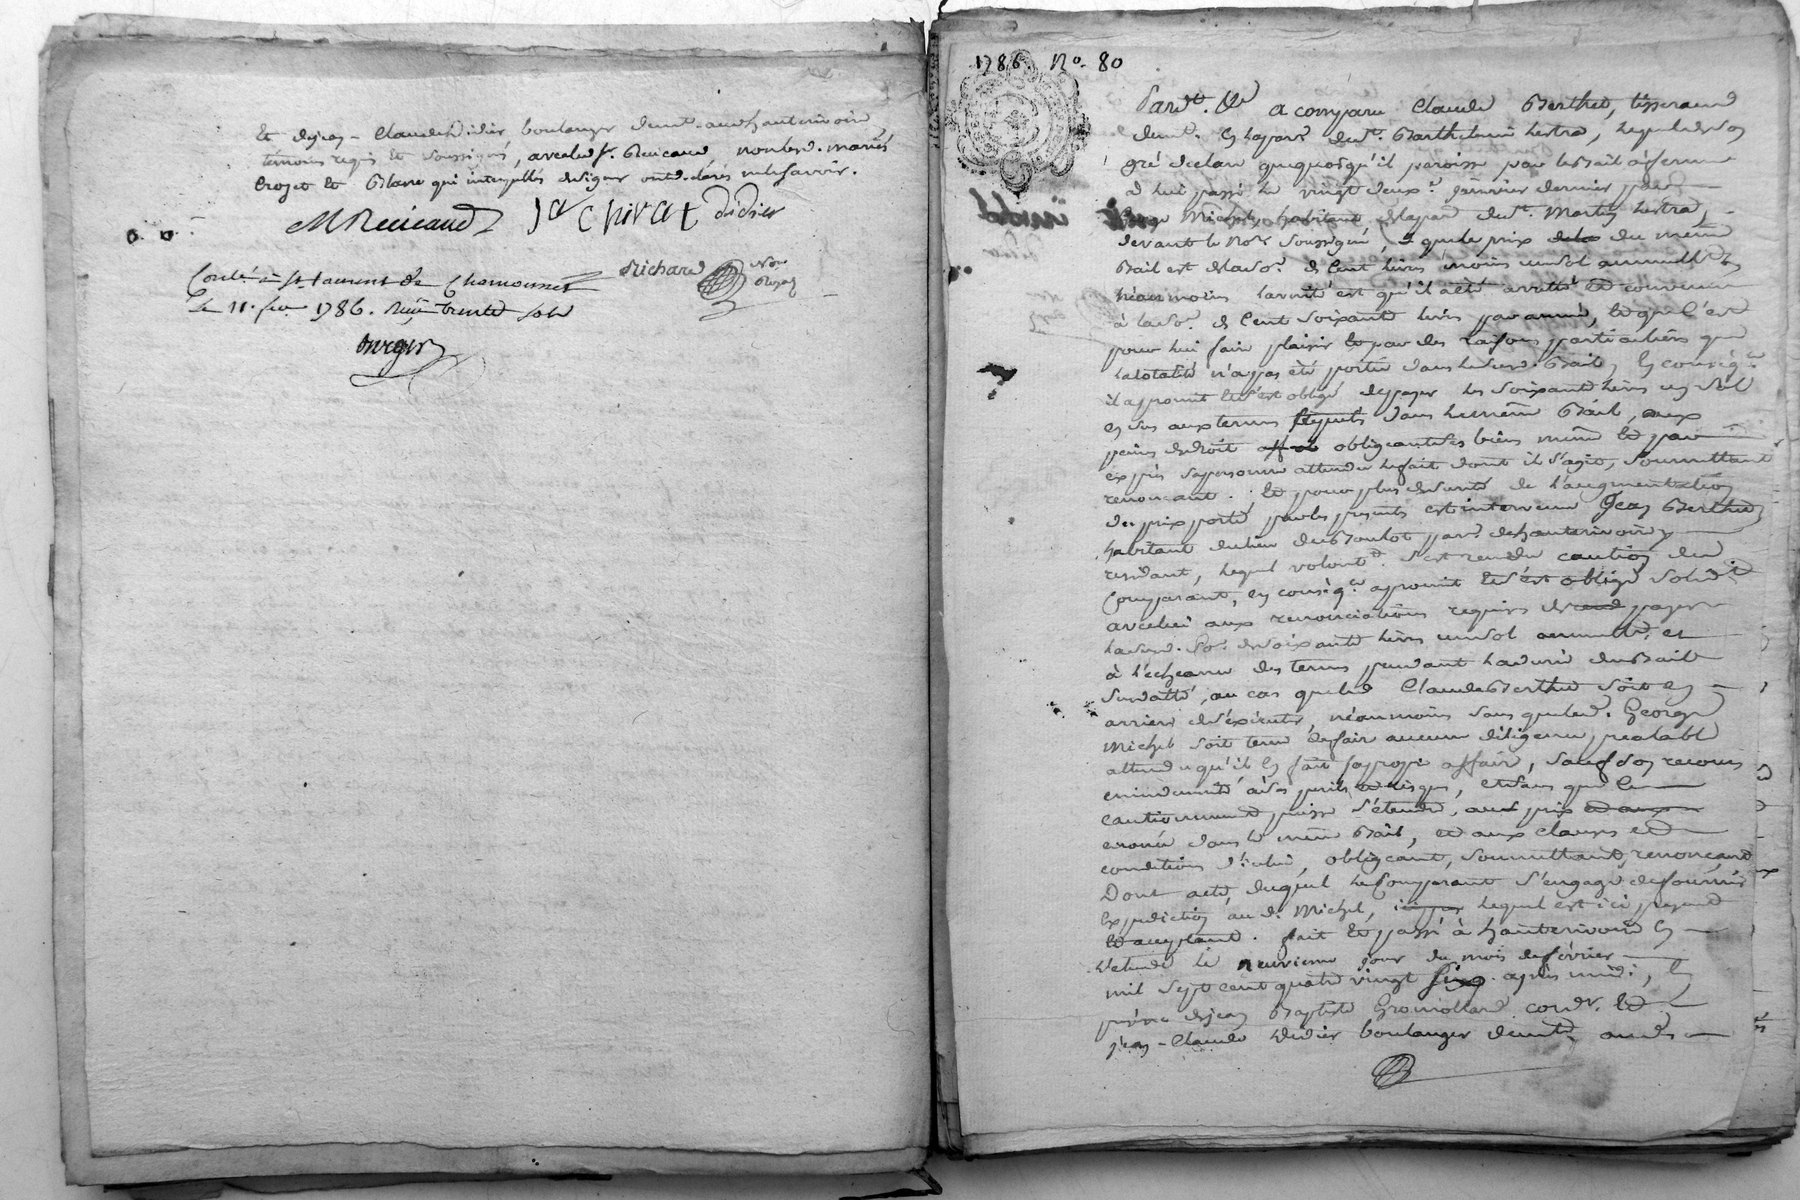 et de jean-Claude didier boulanger demt. aud hauterivoire
témoins requis et soussignés, avec led. sr. Reuicaud non lesd. mariés
Crozet et Blanc qui interpellés de signer ont déclarés ne le savoir.
MReuicaud Ja Chirat didier
Richard Nore Royal
Conlé à St. laurent de Chamousset
Le 11. fer 1786. Reçu trente sols
1786. No. 80
Pardt. &c a comparu Claude Berthet, tisserand
demt. en la parr. de St. Barthelemi lestra, lequel de son
gré declare que quoiqu'il paroisse par le Bail à ferme
à lui passé le vingt deux. janvier dernier par
George Michel, habitant de la par. de St. Martin lestra,
devant le Nore soussigné, que le prix du même
Bail est de la so. de Cent livres moins un sol annuellt.
néanmoins la vérité est qu'il a été arretté et convenu
à la so. de Cent soixante livres par année, et que c'est
pour lui faire plaisir et par des raisons particulières que
la totalité n'a pas été portée dans le susd. Bail, en conséq.
il a promit et s'est obligé de payer les soixante livres un sol
en sus aux termes dans le même Bail, aux
peines de droit obligeant ses biens même et par
exprès sa personne attendu le fait dont il s'agit, soumettant
renoncant. et pour plus de sureté de l'augmentation
du prix porté par les presents est intervenu Jean Berthet
habitant du lieu du Boulot parr. de hauterivoire
, lequel volont. s'est rendu caution dud
Comparant, en conséq. a promit et s'est obligé solid.
avec lui aux renonciations requises de payer
lad. so. de soixante livres un sol annuellt. et
à l'échéance des termes pendant la durée du Bail
susdatté, au cas que led Claude Berthet soit en
arriere de s'exécuter, néanmoins sans que led. George
Michel soit tenu de faire aucune diligence prealable
attendu qu'il en fait sa propre affaire, sauf son recours
en indemnité à ses perils et risques, et sans que le
cautionnement puisse s'étendre, au prix
enoncé dans le même Bail, et aux clauses et
conditions d'icelui, obligeant, soumettant, renonçant
Dont acte, duquel le Comparant s'engage de fournir
Expedition au d. Michel, lequel est ici présent
et acceptant. fait et passé à hauterivoire en
l'étude le neuvieme jour du mois de février
mil sept cent quatre vingt six après midi, en
présence de jean Baptiste Gromollard cord. et
jean-Claude didier boulanger demt. aud